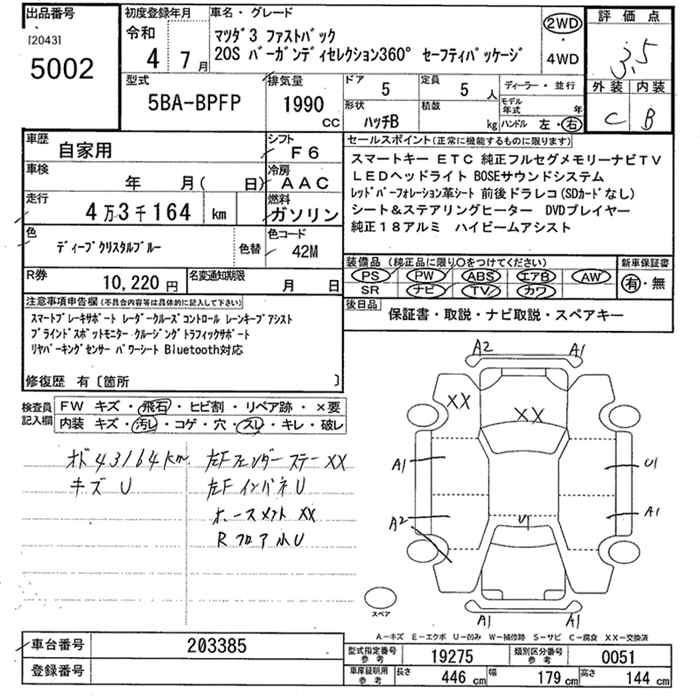 出品番号 初度登録年月 車名・グレード 評価点
[2043] 令和 マツダ3 ファストバック 2WD
5002 4 7月 20S バーガンディセレクション360° セーフティパッケージ ・4WD 3.5
型式 排気量 ドア 定員 ディーラー・並行 外装 内装
5BA-BPFP 1990 CC 5 5人 モデル年式 年 C B
形状 積載
ハッチB kg ハンドル 左・右
車歴 自家用 シフト F6 セールスポイント(正常に機能するものに限ります)
車検 年 月( 日) 冷房 AAC スマートキー ETC 純正フルセグメモリーナビTV
LEDヘッドライト BOSEサウンドシステム
走行 4万3千164 km 燃料 ガソリン レッドパーフォレーション革シート 前後ドラレコ(SDカードなし)
シート&ステアリングヒーター DVDプレイヤー
色 ディープクリスタルブルー 色替 色コード 42M 純正18アルミ ハイビームアシスト
装備品(純正品に限り○をつけてください) 新車保証書
R券 10,220円 名変通知期限 月 日 PS PW ABS エアB AW 有・無
SR ナビ TV カワ
注意事項申告欄(不具合内容等は具体的に記入して下さい) 後日品 保証書・取説・ナビ取説・スペアキー
スマートブレーキサポート レーダークルーズコントロール レーンキープアシスト
ブラインドスポットモニター クルージングトラフィックサポート
リヤパーキングセンサー パワーシート Bluetooth対応
修復歴 有〔箇所 〕
検査員記入欄 FW キズ・飛石・ヒビ割・リペア跡・×要
内装 キズ・汚レ・コゲ・穴・スレ・キレ・破レ
オド43164km 左Fフェンダーステー XX
キズ U 左Fインパネ U
ホースメント XX
Rフロア小U
A2 A1
XX XX
A1 U1
A2 U1 A1
スペア A1 A1
A―キズ E―エクボ U―凹み W―補修跡 S―サビ C―腐食 XX―交換済
車台番号 203385 型式指定番号 参考 19275 類別区分番号 参考 0051
登録番号 車庫証明用 参考 長さ 446cm 幅 179cm 高さ 144cm